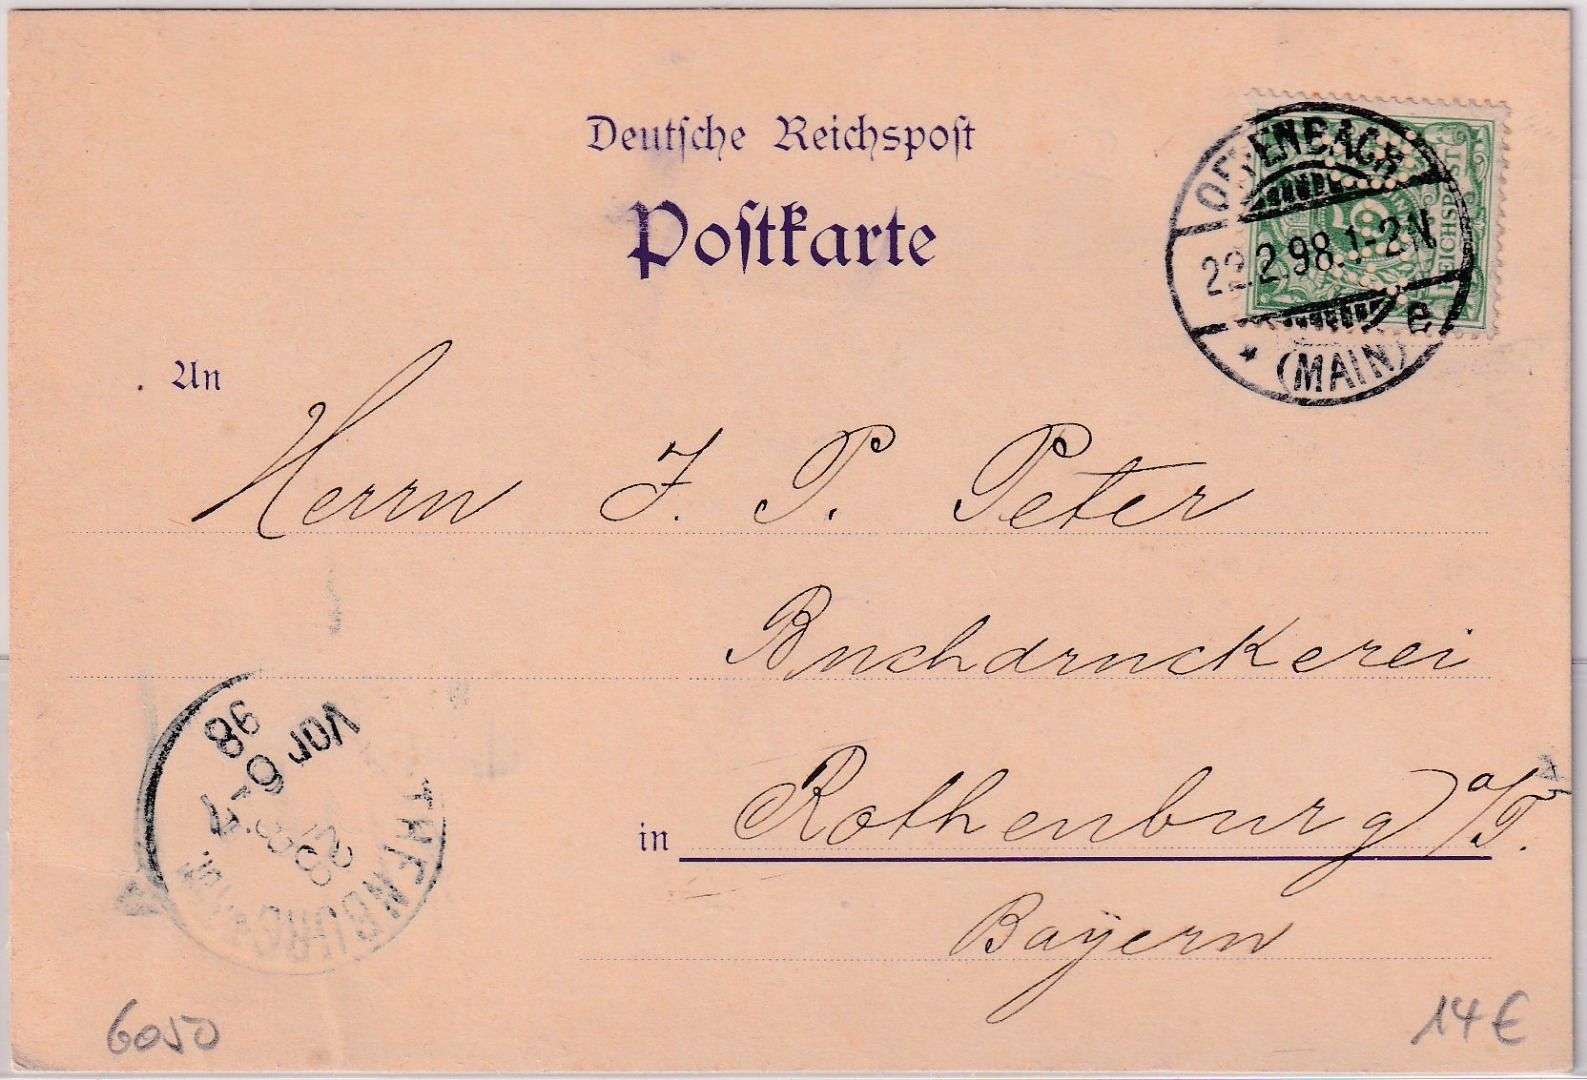 Deutsche Reichspost
Postkarte
OFFENBACH
22.2.98.1-2N
e
* (MAIN)
5
REICHSPOST
An
Herrn J. P. Peter
Buchdruckerei
in Rothenburg a/T.
Bayern
Vor 6-7
98
23
6050
14 €